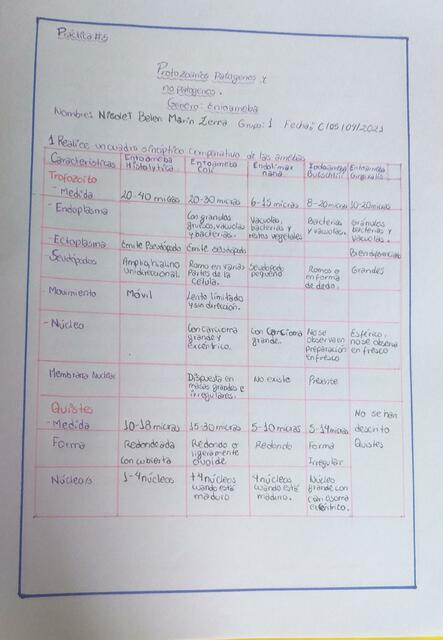 Práctica #5
Protozoarios Patogenos y
no patogenos.
Genero: Entoameba
Nombre: Nicolet Belen Marin Zerra Grupo: 1 Fecha: 
1 Realice un cuadro sinóptico comparativo de las amebas
Características Entoameba Histolytica Entoameba Coli Endolimax nana Iodoameba Butschlii Entoameba Gingivalis
Trofozoito
- Medida 20-40 micras 20-30 micras 6-15 micras 8-20 micras 10-20 micras
- Endoplasma Con granulos gruesos, vacuolas y bacterias. Vacuolas, bacterias y restos vegetales Bacterias y vacuolas. Gránulos bacterias y vacuolas.
- Ectoplasma Emite Pseudópodo Emite seudópodo Bien diferenciado
- Seudópodos Amplio, hialino unidireccional. Romo en varias partes de la celula. Seudópodo pequeño Romos o en forma de dedo. Grandes
Movimiento Móvil Lento limitado y sin dirección.
- Núcleo Con cariosoma grande y excéntrico. Con cariosoma grande. No se observa en preparación en fresco Esférico, no se observa en fresco
Membrana Nuclear Dispuesta en masas grandes e irregulares. No existe Presente
Quistes No se han descrito Quistes
- Medida 10-18 micras 15-30 micras 5-10 micras 5-14 micras
Forma Redondeada con cubierta Redondo o ligeramente ovoide Redondo Forma Irregular
Núcleo/s 1-4 núcleos +4 núcleos cuando está maduro. 4 núcleos cuando está maduro. Núcleo grande con cariosoma excéntrico.